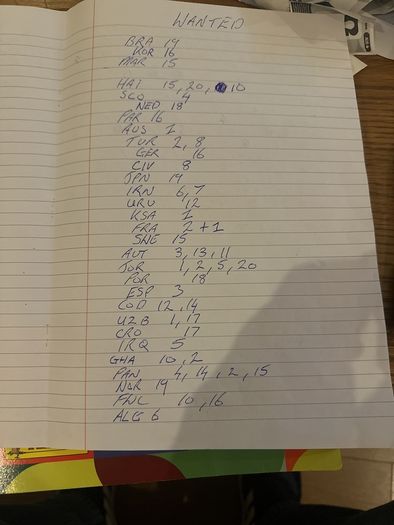 WANTED
BRA 19
KOR 16
MAR 15
HAI 15, 20, 10
SCO 4
NED 18
PAR 16
AUS 1
TUR 2, 8
GER 16
CIV 8
JPN 19
IRN 6, 7
URU 12
KSA 1
FRA 2 + 1
SNE 15
AUT 3, 13, 11
JOR 1, 2, 5, 20
POR 18
ESP 3
COD 12, 14
UZB 1, 17
CRO 17
IRQ 5
GHA 10, 2
PAN 4, 14, 2, 15
NOR 19
FWC 10, 16
ALG 6